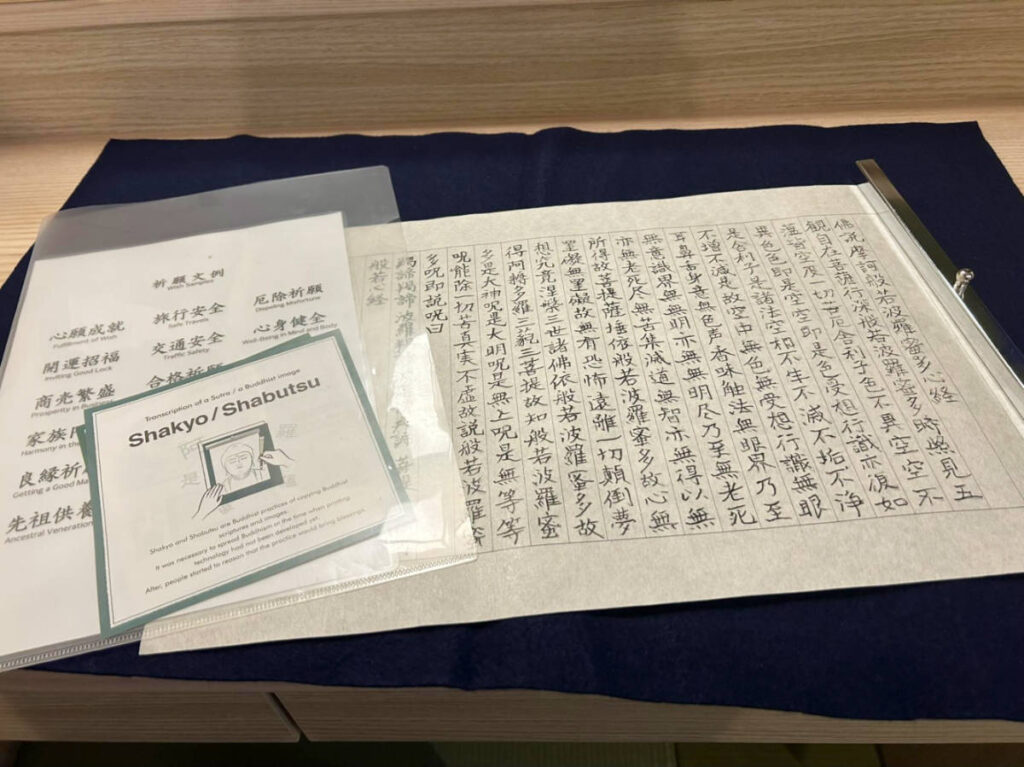 祈願文例
Wish Samples
厄除祈願
Dispelling Misfortune
旅行安全
Safe Travels
心願成就
Fulfillment of Wish
心身健全
Well-Being in Mind and Body
交通安全
Traffic Safety
開運招福
Inviting Good Luck
合格祈願
商売繁盛
Prosperity in Bu
家族円
Harmony in the
良縁祈
Getting a Good Ma
先祖供養
Ancestral Veneration
Transcription of a Sutra / a Buddhist image
Shakyo / Shabutsu
Shakyo and Shabutsu are Buddhist practices of copying Buddhist
scriptures and images.
It was necessary to spread Buddhism in the time when printing
technology had not been developed yet.
After, people started to reason that the practice would bring blessings.
佛説摩訶般若波羅蜜多心経
観自在菩薩行深般若波羅蜜多時照見五
蘊皆空度一切苦厄舎利子色不異空空不
異色色即是空空即是色受想行識亦復如
是舎利子是諸法空相不生不滅不垢不浄
不増不減是故空中無色無受想行識無眼
耳鼻舌身意無色声香味触法無眼界乃至
無意識界無無明亦無無明尽乃至無老死
亦無老死尽無苦集滅道無智亦無得以無
所得故菩提薩埵依般若波羅蜜多故心無
罣礙無罣礙故無有恐怖遠離一切顛倒夢
想究竟涅槃三世諸佛依般若波羅蜜多故
得阿耨多羅三藐三菩提故知般若波羅蜜
多是大神呪是大明呪是無上呪是無等等
呪能除一切苦真実不虚故説般若波羅蜜
多呪即説呪曰
羯諦羯諦 波羅
般若心経